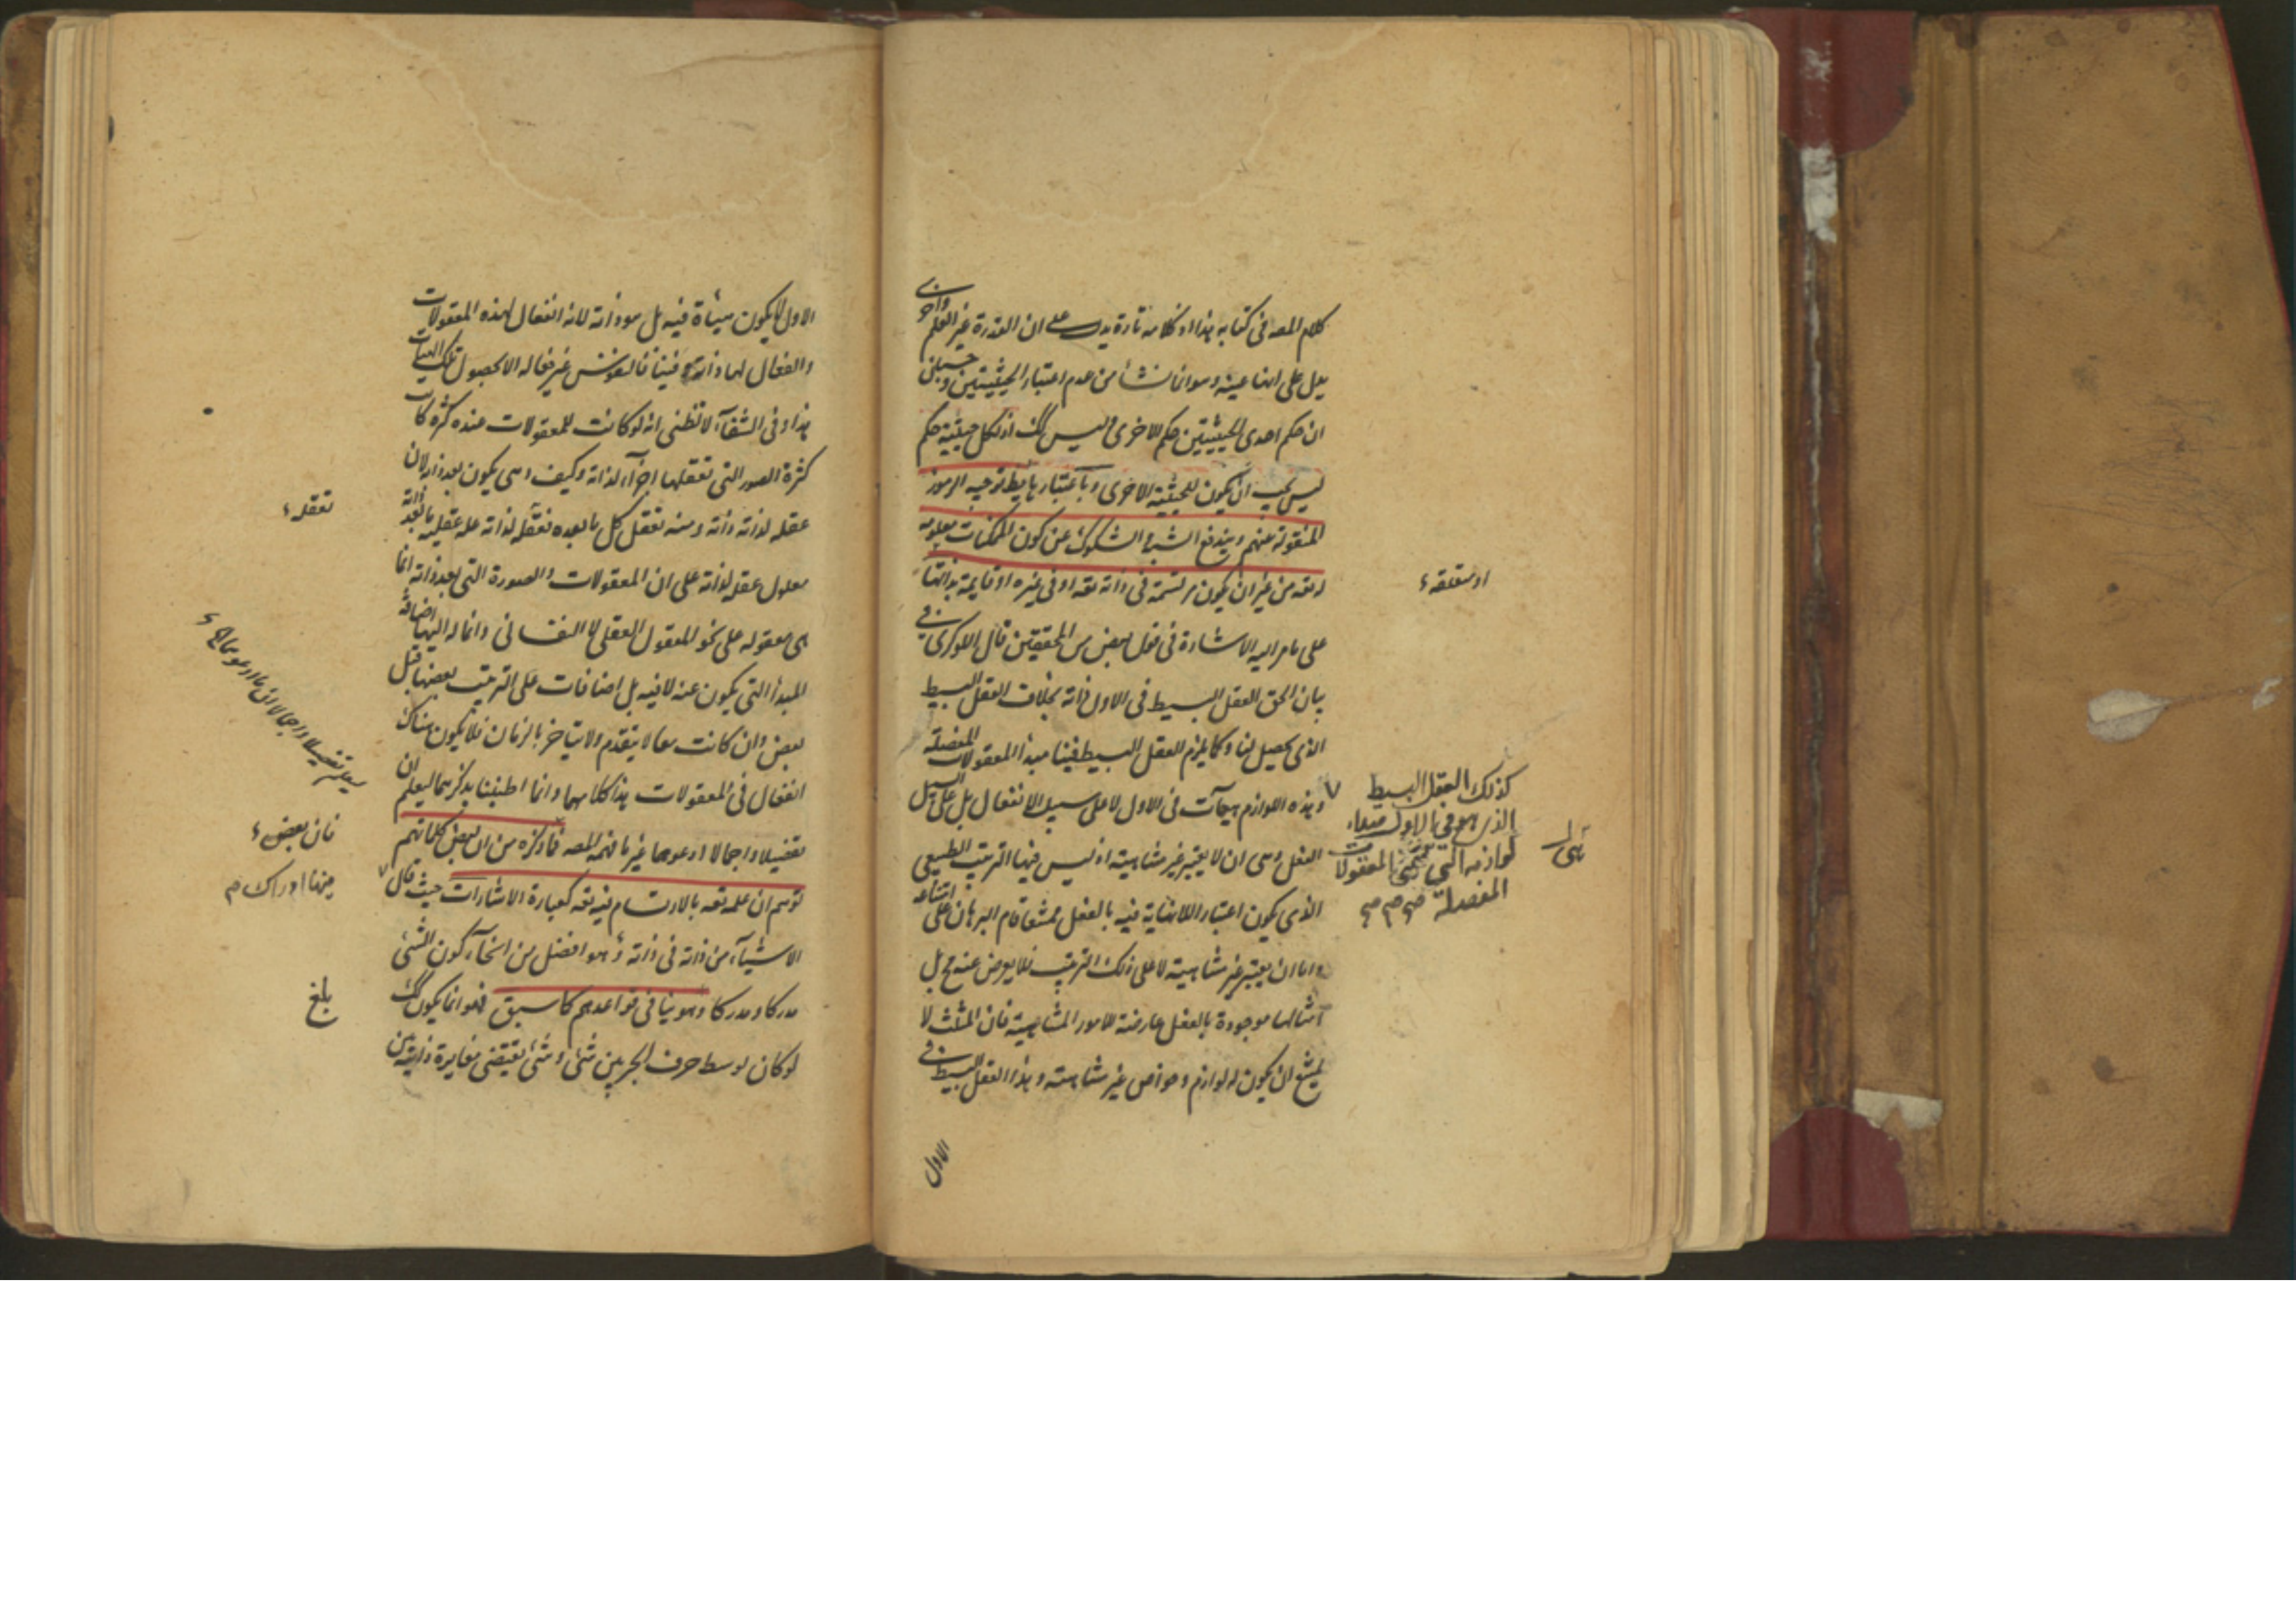 كلام المصه فى كتابه هذا اذ كلامه تارة يدل على ان القدرة غير العلم واخرى
يدل على انها عينه وهو انما نشأ من عدم اعتبار الحيثيتين و
ان حكم احدى الحيثيتين حكم للاخرى وليس كك اذ لكل حيثية حكم
ليس يجب ان يكون للحيثية الاخرى وباعتبارهما يظ توجيه الرموز
المنقولة عنهم ويندفع الشبه الشكوك عن كون الممكنات معلومه
له تعه من غير ان يكون مرتسمة فى ذاته تعه او فى غيره او قايمة بذاتها
على ما مر اليه الاشارة فى قول بعض من المحققين قال اللوكرى فى
بيان الحق العقل البسيط فى الاول ذاته بخلاف العقل البسيط
الذى يحصل لنا وكما يلزم للعقل البسيط فينا مبدأ المعقولات المفصلة
وهذه اللوازم هيآت فى الاول لا على سبيل الانفعال بل على سبيل
الفعل وهى ان لا يعتبر غير متناهية اذ ليس فيها الترتيب الطبيعى
الذى يكون اعتبار اللانهاية فيه بالفعل ممتنعا قام البرهان على امتناعه
واما ان يعتبر غير متناهية لا على ذلك الترتيب فلا يعرض عنه مح بل
امثالها موجودة بالفعل عارضة للامور المتناهية فان المثلث لا
يمتنع ان يكون له لوازم وخواص غير متناهية وهذا العقل البسيط فى
الاول
او متعلقه
كذلك العقل البسيط
الذى هو فى الاول مبداء
لوازمه التى هى المعقولات
المفصلة صح صح صح
الاول لا يكون هيأة فيه بل هو ذاته لانه انفعال لهذه المعقولات
والفعال لها ذاته وفينا فالنفوس غير فعاله الا بحصول تلك الهيآت
هذا وفى الشفآء لا تظنى انه لو كانت للمعقولات عنده كثرة كانت
كثرة الصور التى تعقلها اجزآء لذاته وكيف وهى يكون بعد ذاته لان
عقله لذاته ذاته ومنه تعقل كل ما بعده فعقله لذاته علة عقله ما بعد ذاته
معلول عقله لذاته على ان المعقولات والصورة التى بعد ذاته انما
هى معقوله على نحو المعقول العقلى لا النفسانى وانما له اليها اضافة
المبدأ التى يكون عنه لا فيه بل اضافات على الترتيب بعضها قبل
بعض وان كانت معا لا يتقدم ولا يتاخر بالزمان فلا يكون هناك
انفعال فى المعقولات هذا كلامهما وانما اطنبنا بذكرهما ليعلم ان
تفصيلا واجمالا ادعوهما غير ما فهمه المصه فما ذكره من ان بعض كلماتهم
توهم ان علمه تعه بالارتسام فيه تعه كعبارة الاشارات حيث قال
الاشيآء من ذاته فى ذاته وهو افضل من انحآء كون الشئ
مدركا ومدركا وهو ينافى قواعدهم كما سبق فهو انما يكون كك
لو كان توسط حرف الجر بين شئ وشئ يقتضى مغايرة ذاتية بين
تعقله
فان بعض
منها ادراك م
بلغ